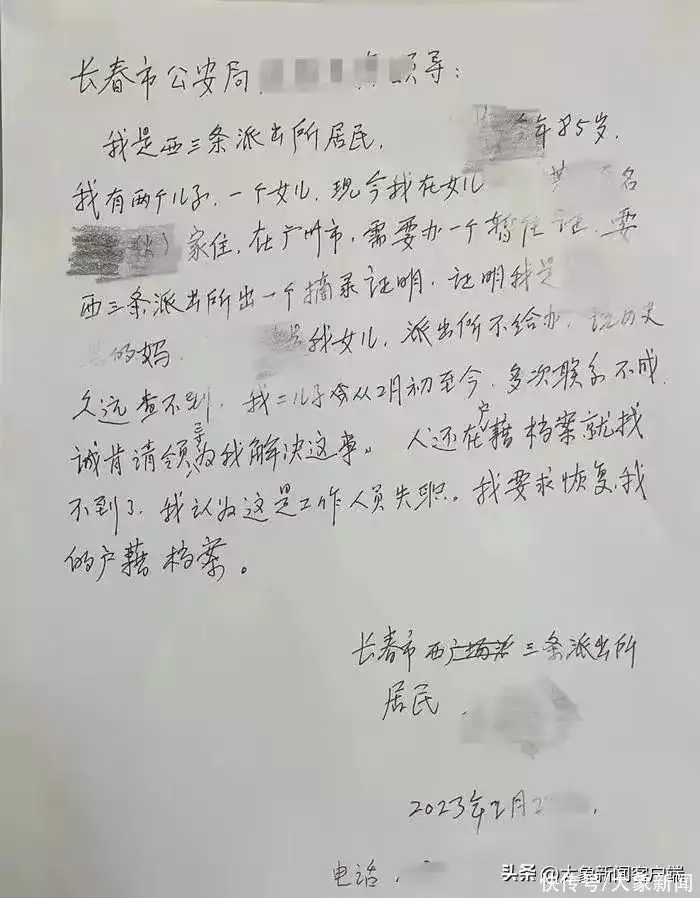 长春市公安局 领导：
我是西三条派出所居民， 今年85岁，
我有两个儿子，一个女儿，现今我在女儿 名
家住，在广州市，需要办一个暂住证，要
西三条派出所出一个摘录证明，证明我是
的妈， 是我女儿，派出所不给办，说历史
久远查不到，我二儿子从2月初至今，多次联系不成，
诚肯请领导为我解决这事。人还在户藉档案就找
不到了，我认为这是工作人员失职。我要求恢复我
的户藉档案。
长春市西三条派出所
居民，
2023年2月2
电话，
头条@大象新闻客户端
快传号/大象新闻